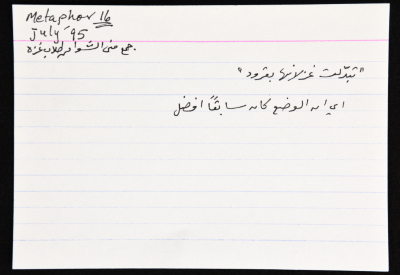 Metaphor 16
July '95
جمع منى الشوا من طلاب غزة.
"تبدّلت غزلانها بقرود"
اي ان الوضع كان سابقًا افضل